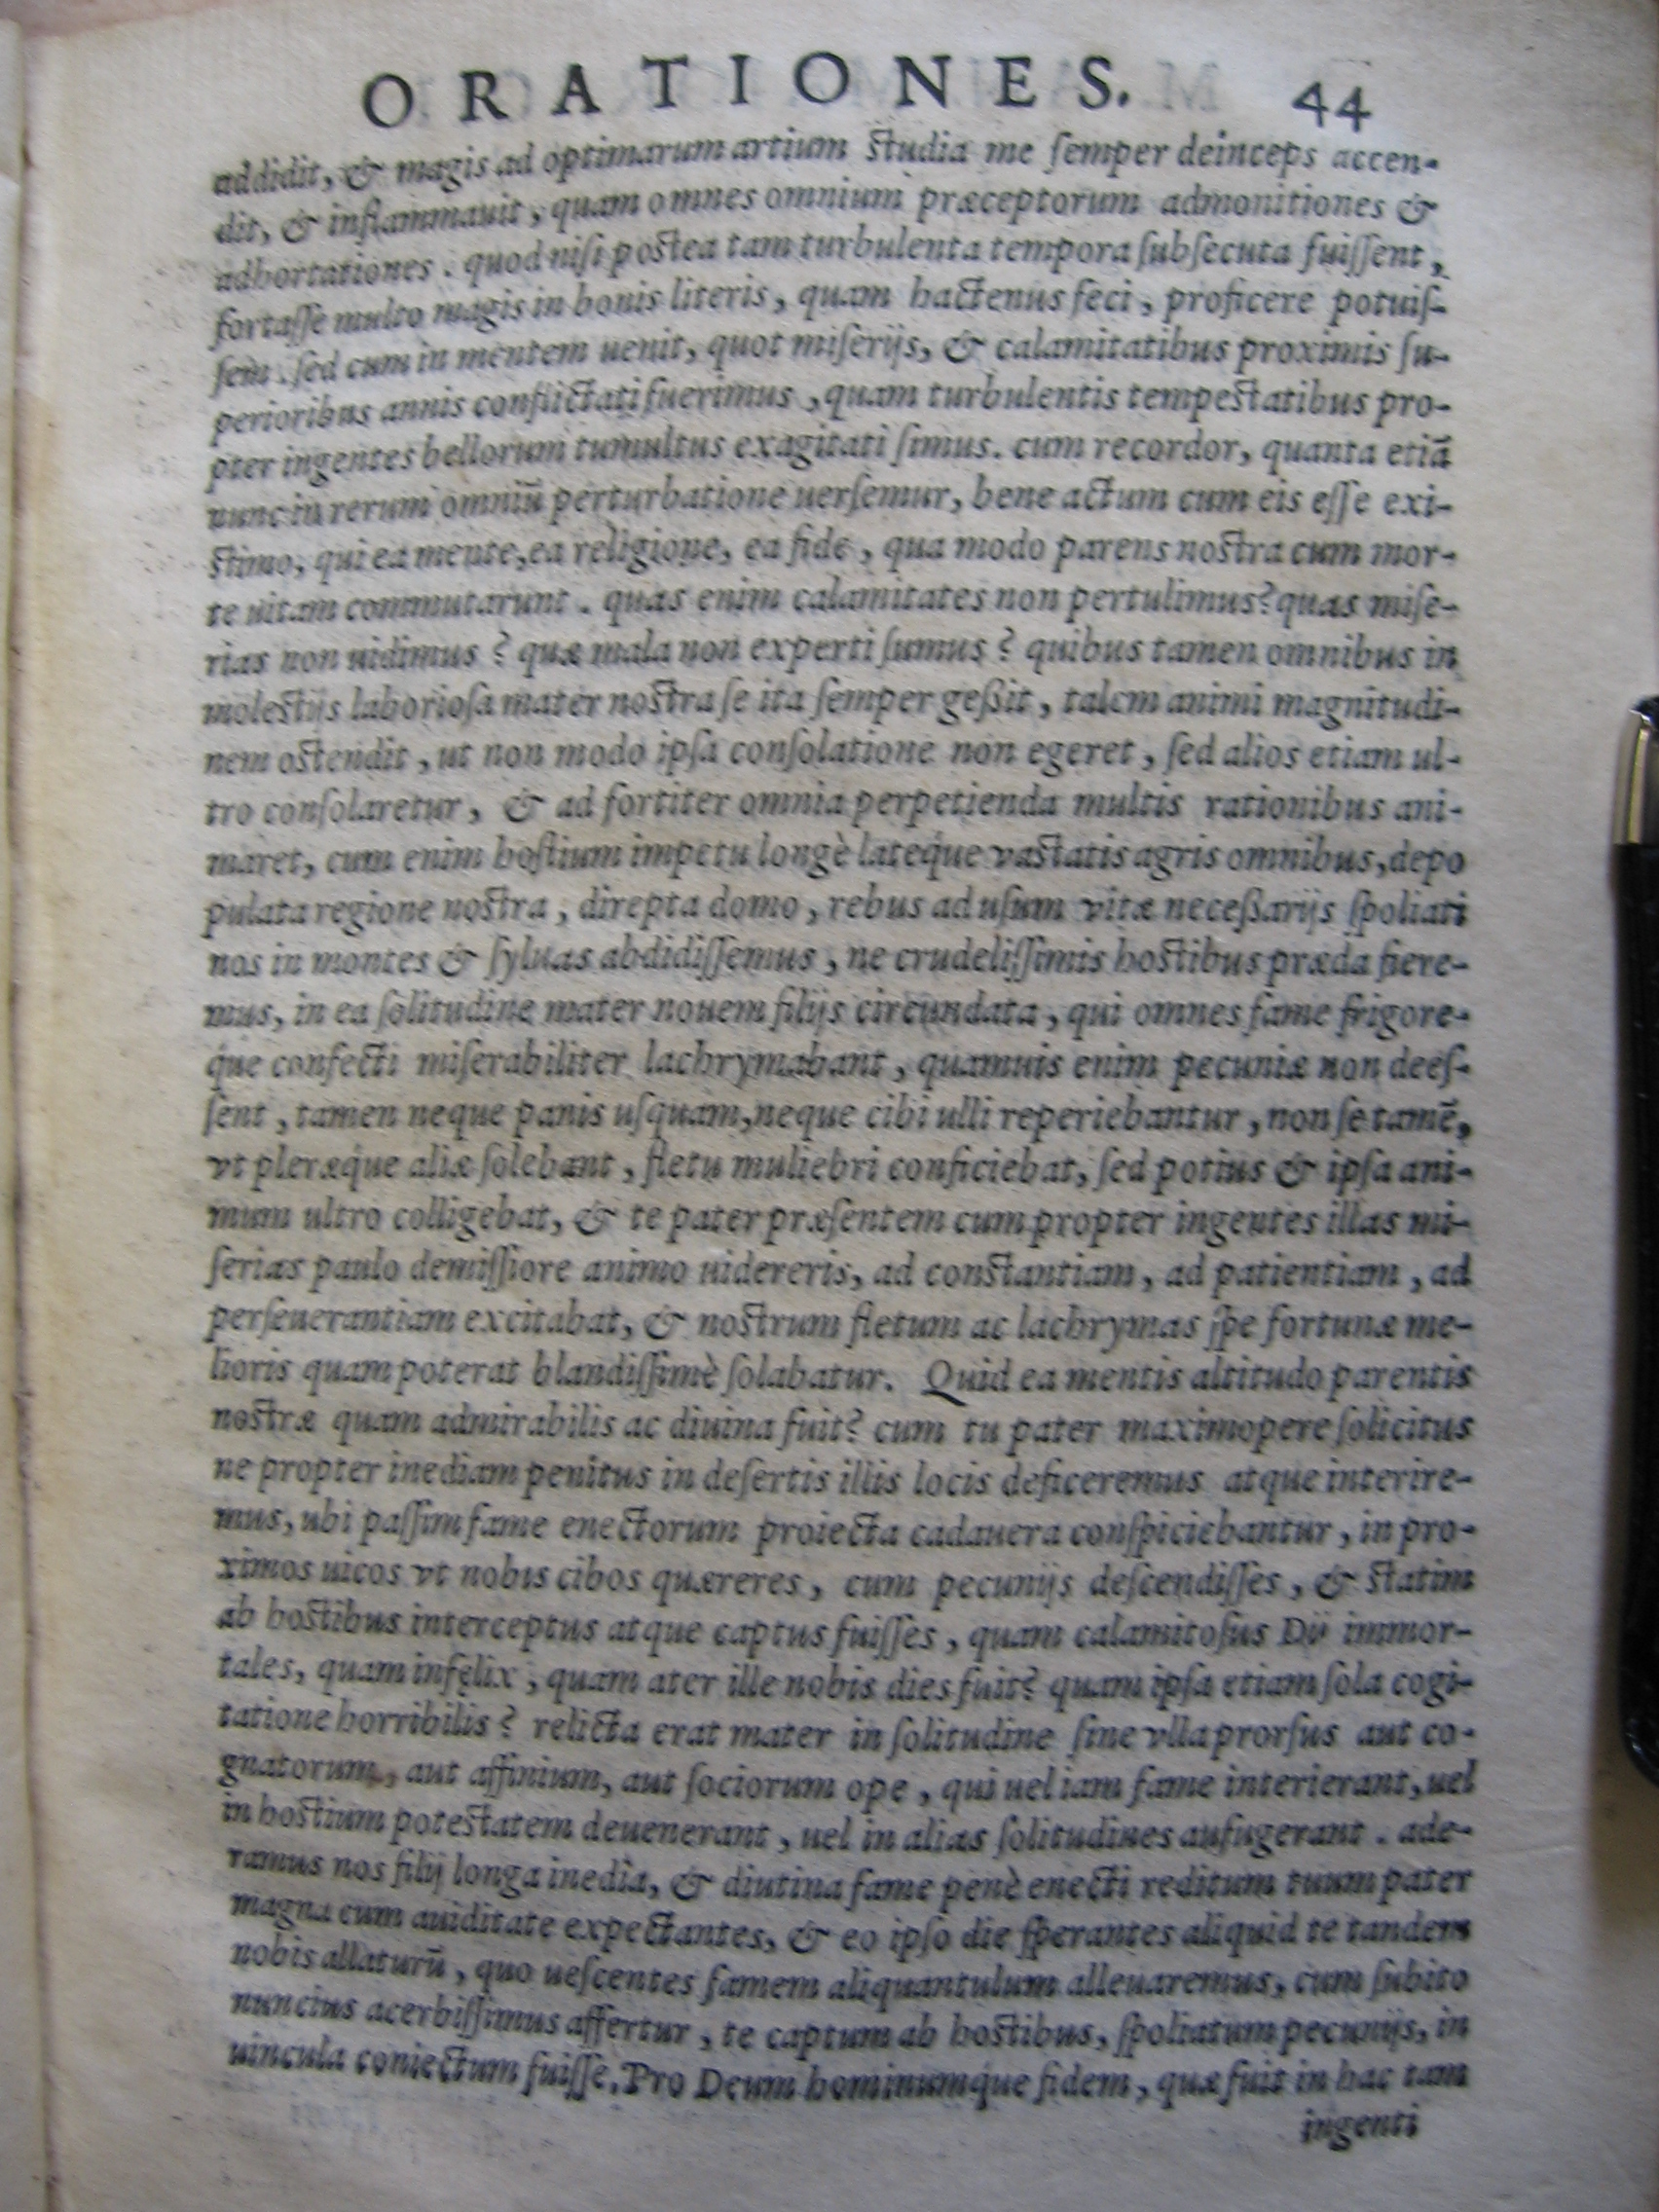 ORATIONES. 44
addidit, & magis ad optimarum artium ſtudia me ſemper deinceps accen-
dit, & inflammauit, quam omnes omnium præceptorum admonitiones &
adhortationes. quod niſi poſtea tam turbulenta tempora ſubſecuta fuiſſent,
fortaſſe multo magis in bonis literis, quam hactenus feci, proficere potuiſ-
ſem. ſed cum in mentem uenit, quot miſerijs, & calamitatibus proximis ſu-
perioribus annis conflictati fuerimus, quam turbulentis tempeſtatibus pro-
pter ingentes bellorum tumultus exagitati ſimus. cum recordor, quanta etiā
nunc in rerum omniū perturbatione uerſemur, bene actum cum eis eſſe exi-
ſtimo, qui ea mente, ea religione, ea fide, qua modo parens noſtra cum mor-
te uitam commutarunt. quas enim calamitates non pertulimus? quas miſe-
rias non uidimus? quæ mala non experti ſumus? quibus tamen omnibus in
moleſtijs laborioſa mater noſtra ſe ita ſemper geßit, talem animi magnitudi-
nem oſtendit, ut non modo ipſa conſolatione non egeret, ſed alios etiam ul-
tro conſolaretur, & ad fortiter omnia perpetienda multis rationibus ani-
maret, cum enim hoſtium impetu longè lateq́ue vaſtatis agris omnibus, depo
pulata regione noſtra, direpta domo, rebus ad uſum vitæ neceßarijs ſpoliati
nos in montes & ſyluas abdidiſſemus, ne crudeliſſimis hoſtibus præda fiere-
mus, in ea ſolitudine mater nouem filijs circundata, qui omnes fame frigore-
q́ue confecti miſerabiliter lachrymabant, quamuis enim pecuniæ non deeſ-
ſent, tamen neque panis uſquam, neque cibi ulli reperiebantur, non ſe tamē,
vt pleræq́ue aliæ ſolebant, fletu muliebri conficiebat, ſed potius & ipſa ani-
mum ultro colligebat, & te pater præſentem cum propter ingentes illas mi-
ſerias paulo demiſſiore animo uidereris, ad conſtantiam, ad patientiam, ad
perſeuerantiam excitabat, & noſtrum fletum ac lachrymas ſpe fortunæ me-
lioris quam poterat blandiſſimè ſolabatur. Quid ea mentis altitudo parentis
noſtræ quam admirabilis ac diuina fuit? cum tu pater maximopere ſolicitus
ne propter inediam penitus in deſertis illis locis deficeremus atque interire-
mus, ubi paſſim fame enectorum proiecta cadauera conſpiciebantur, in pro-
ximos uicos vt nobis cibos quæreres, cum pecunijs deſcendiſſes, & ſtatim
ab hoſtibus interceptus atque captus fuiſſes, quam calamitoſus Dij immor-
tales, quam infelix, quam ater ille nobis dies fuit? quam ipſa etiam ſola cogi-
tatione horribilis? relicta erat mater in ſolitudine ſine vlla prorſus aut co-
gnatorum, aut affinium, aut ſociorum ope, qui uel iam fame interierant, uel
in hoſtium poteſtatem deuenerant, uel in alias ſolitudines aufugerant. ade-
ramus nos filij longa inedia, & diutina fame penè enecti reditum tuum pater
magna cum auiditate expectantes, & eo ipſo die ſperantes aliquid te tandem
nobis allaturū, quo ueſcentes famem aliquantulum alleuaremus, cum ſubito
nuncius acerbiſſimus affertur, te captum ab hoſtibus, ſpoliatum pecunijs, in
uincula coniectum fuiſſe. Pro Deum hominumq́ue fidem, quæ fuit in hac tam
ingenti